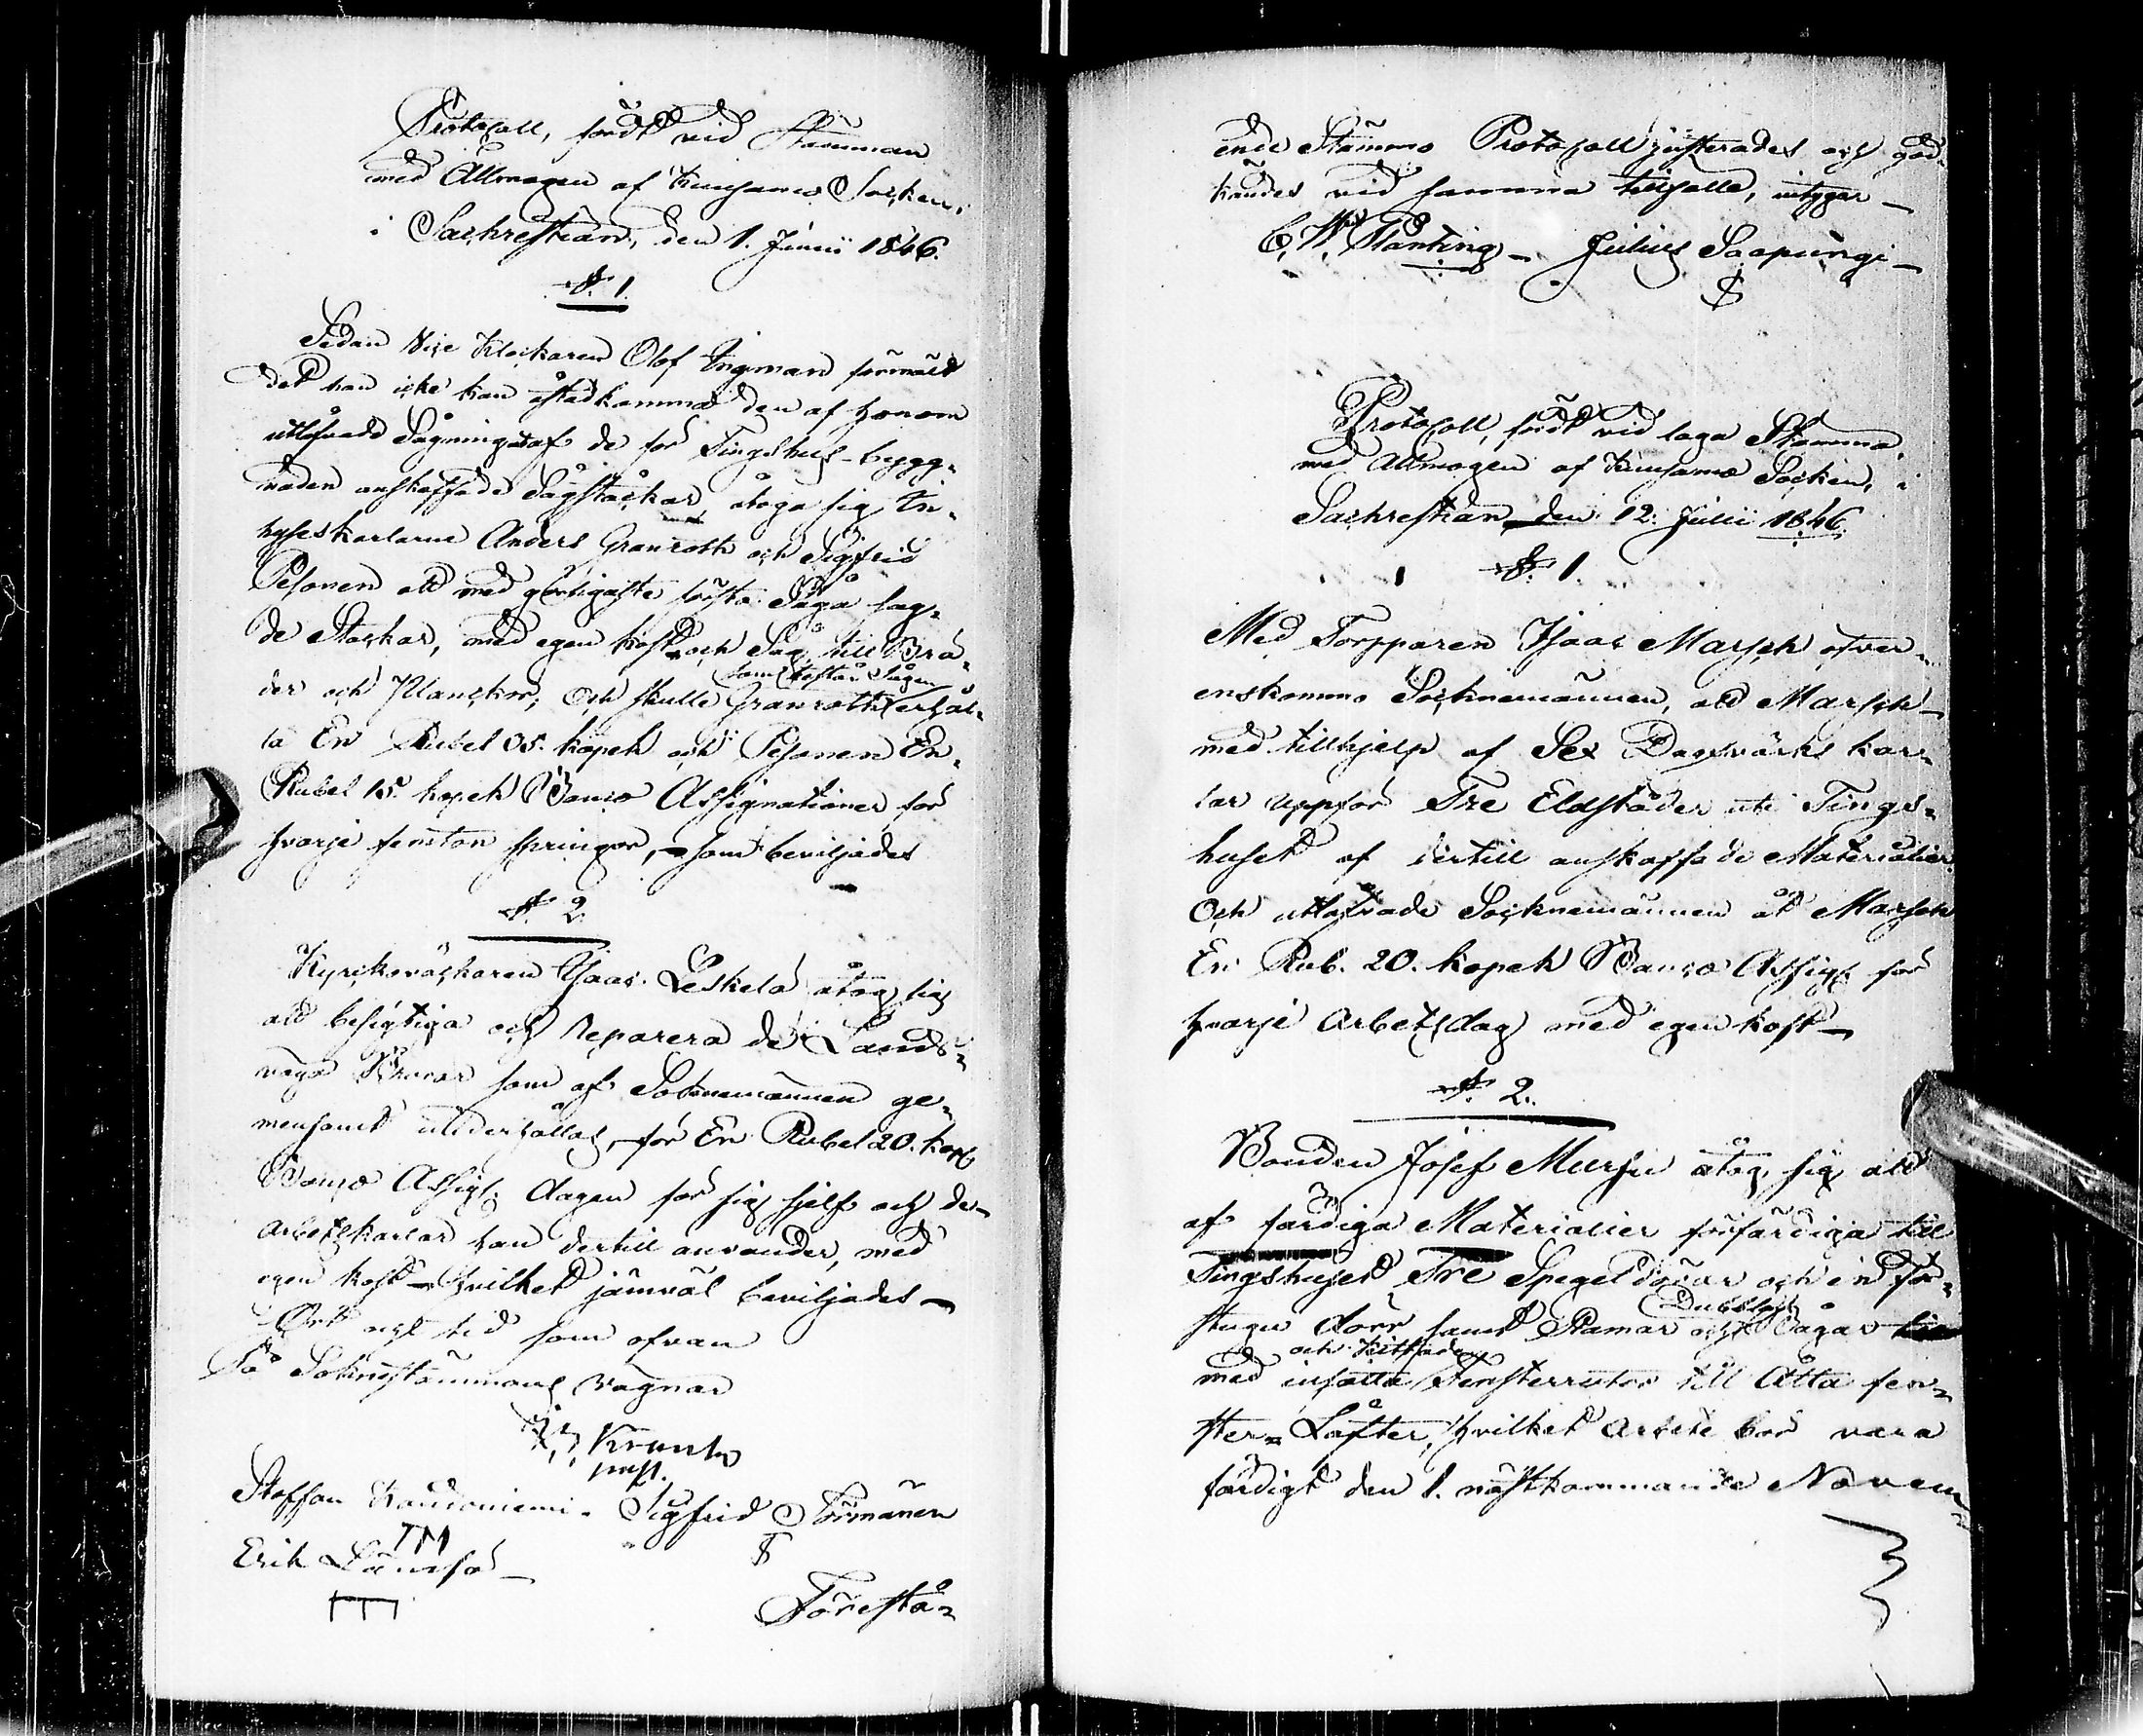 Protocoll, fördt vid Stämman
med Allmogen af Kuusamo Socken,
i Sachrestian, den 1. Junii 1846.
§. 1.
Sedan Vice Klockaren Olof Ingman förmält
det han icke kan åstadkomma den af honom
utlofvade Sågning af de för Tingshus-bygg-
naden anskaffade Sågstockar, åtogo sig In-
hyseskarlarne Anders Granroth och Sigfrid
Pesonen att med görligaste första Såga sag-
de Stockar, med egen kost och Såg, till Brä-
som kostar Sågen
der och Planckor, Och skulle Granroth erhål-
la En Rubel 05. kopek och Pesonen En
Rubel 15. kopek Banco Assignationer för
hvarje femton springor, som beviljades
§. 2.
Kyrkoväcktaren Isaac Leskelä åtog sig
att besigtiga och reparera de Lands-
vägs som af Soknemännen ge-
mensamt underhållas, för En Rubel 20. kop
Banco Assign. dagen för sig sjelf och de
arbetskarlar han dertill använder, med
egen kost – hvilket jämväl beviljades –
Ort och tid som ofvan
På Soknestämmans vägnar
Krank
past.
Staffan Kandoniemi. Sigfrid Törmänen
TM
Erik Lämsä –
Förestå-
ende Stämmo Protocoll justerades och god-
kändes vid samma tillfälle, intygar –
C. W. Planting – Julius Saapungi –
Protocoll, fördt vid laga Stämma
med Allmogen af Kuusamo Socken, i
Sachrestian den 12. Julii 1846.
§. 1.
Med Torpparen Isaac Marsch öfver-
enskommo Socknemännen, att Marsch
med tillhjelp af Sex Dagsvärks kar-
lar uppför Tre Eldstäder uti Tings-
huset af dertill anskaffade Materialier
Och utlofvade Socknemännen åt Marsch
En Rub. 20. kopek Banco Assign för
hvarje Arbetsdag med egen kost –
§. 2.
Bonden Josef Mursu åtog sig att
af färdiga Materialier förfärdiga till
Tingshuset Tre Spegeldörar och en för-
Dubbla
stugu dörr samt Ramar och Bågar
och Kittfade
med insatta Fensterrutor till Åtta fen-
ster-Lufter, hvilket arbete bör vara
färdigt den 1. nästkommande Novem-